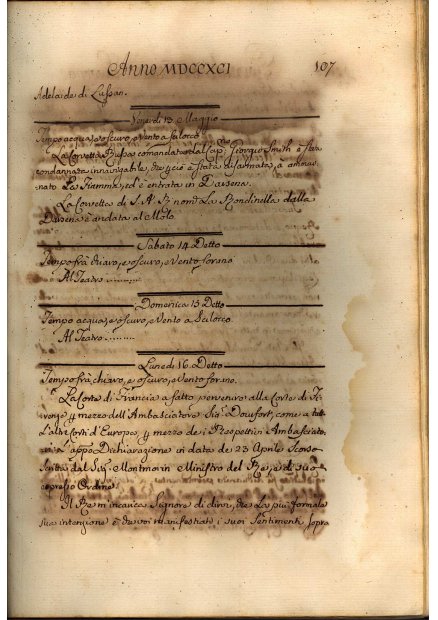 Anno MDCCXCI 107
Adelaide di Lussan.
Venerdi 13. Maggio
Tempo acqua, e oscuro, e vento a scilocco.
La Corvetta Russa comandata dal Cap. Giorgio Smith è stata
condannata innavigabile, e è stata disarmata, à
nato La Fiamma, ed è entrata in Darsena.
La Corvetta di S. A. R. nom. La Rondinella dalla
Darsena è andata al Molo.
Sabato 14. Detto
Tempo frà chiaro, e oscuro, e Vento forano
Al Teatro
Domenica 15. Detto
Tempo acqua, e oscuro, e Vento a Scilocco.
Al Teatro
Lunedi 16. Detto
Tempo frà chiaro, e oscuro, e Vento forano.
La Corte di Francia a fatto pervenire alla Corte di Fi-
renze mezzo dell'Ambasciatore Sig. come a tutt.
L'altre Corti d'Europa mezzo de i Rispettivi Ambasciato-
ri Dichiarazione in data de 23 Aprile scorso
Montmorin Ministro del Re, e di suo
proprio Ordine.
Il Re m'incarica Signore di dirvi, che La più formale
sua intenzione è che voi manifestiate i suoi Sentimenti sopra